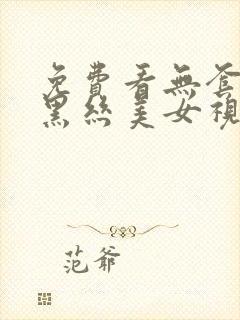 免費看無套
黑絲美女視
范爺